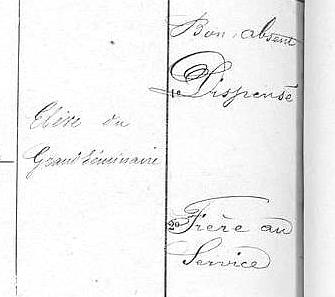 Bon, absent
1º Dispensé
Elève du
Grand Séminaire
2º Frère au
Service